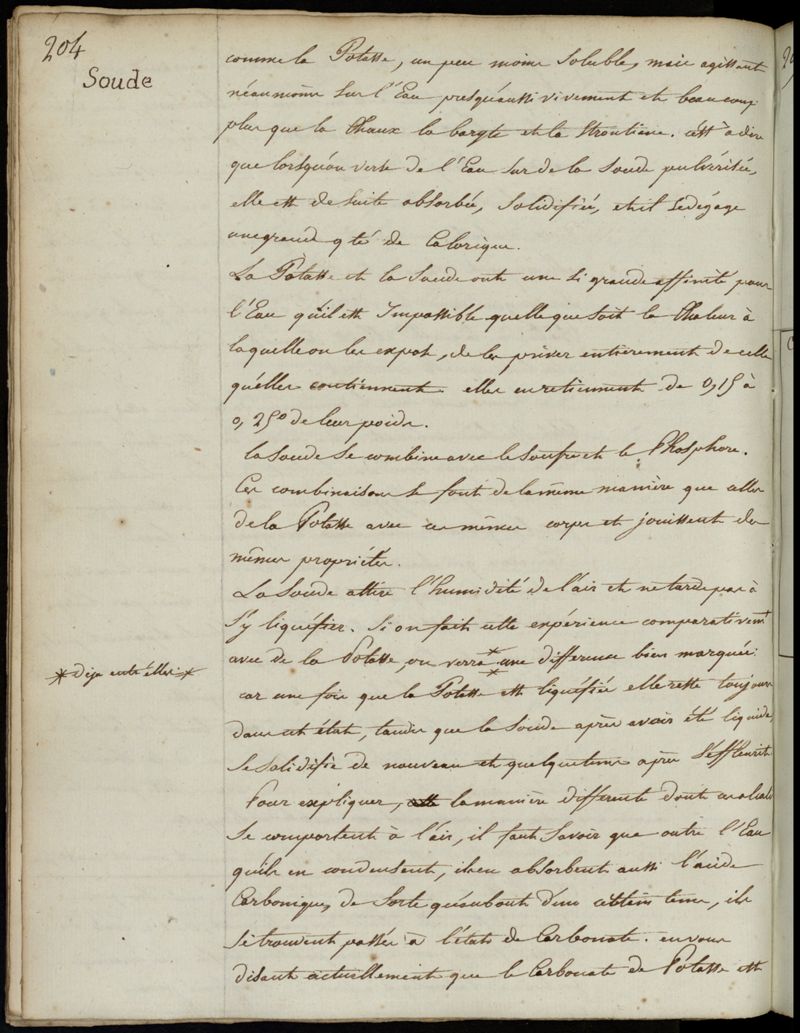 204
Soude
comme la Potasse, un peu moins soluble, mais agissant
néanmoins sur l'Eau presqu'aussi vivement et beaucoup
plus que la Chaux la baryte et la Strontiane. c'est à dire
que lorsqu'on verse de l'Eau sur de la Soude pulvérisée,
elle est de suite absorbée, Solidifiée, et il se dégage
une grande qté de Calorique.
La Potasse et la Soude ont une si grande affinité pour
l'Eau qu'il est Impossible quelle que soit la Chaleur à
laquelle on les expose, de les priver entièrement de celle
qu'elles contiennent. elles en retiennent de 0,15 à
0,25° de leur poids.
la Soude se combine avec le Soufre et le Phosphore.
Ces combinaisons se font de la même manière que celles
de la Potasse avec ces mêmes corps et jouissent des
mêmes propriétés.
La Soude attire l'humidité de l'air et ne tarde pas à
s'y liquéfier. Si on fait cette expérience comparativemt
avec de la Potasse, on verra * une difference bien marquée:
* Deja entr'elles *
car une fois que la Potasse est liquéfiée elle reste toujours
dans cet état, tandis que la Soude après avoir été liquide,
se solidifie de nouveau et quelque tems après s'éffleurit
Pour expliquer, la manière différente dont ces alcalis
se comportent à l'air, il faut Savoir que outre l'Eau
qu'ils en condensent, ils en absorbent aussi l'acide
Carbonique, de Sorte qu'au bout d'un certain tems, ils
se trouvent passés à l'état de Carbonate. en vous
disant actuellement que le Carbonate de Potasse est